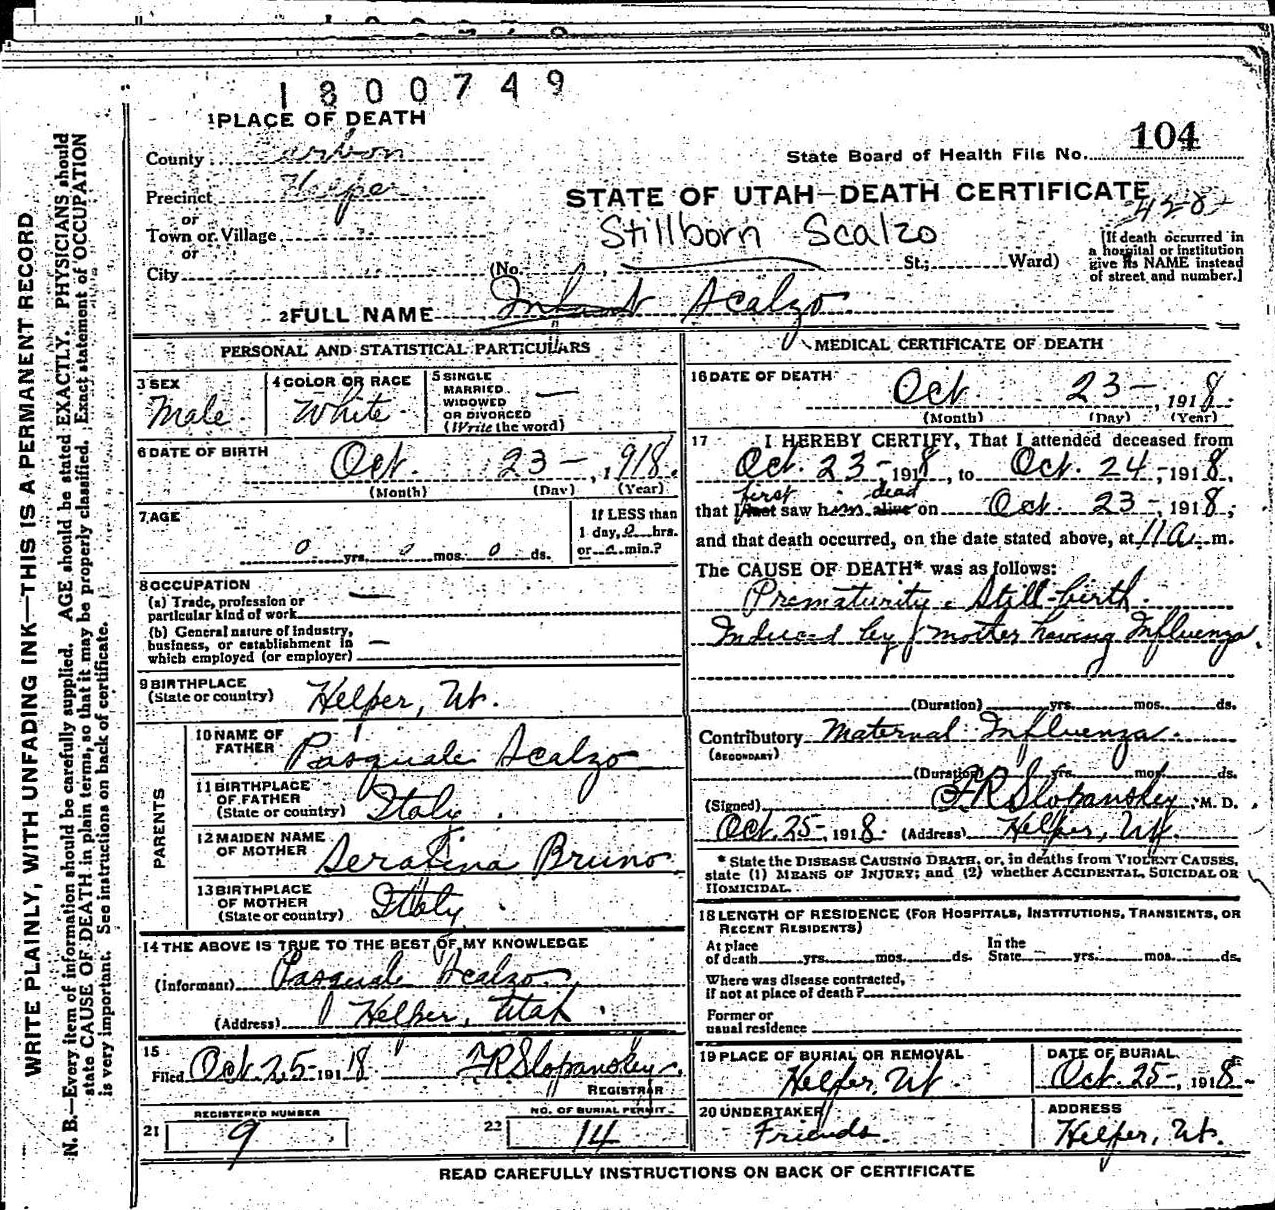 1800749
1 PLACE OF DEATH
104
State Board of Health File No.
County Carbon
Precinct Helper
or
Town or Village
or
City
STATE OF UTAH—DEATH CERTIFICATE
428
Stillborn Scalzo
(No. St.; Ward)
[If death occurred in
a hospital or institution
give its NAME instead
of street and number.]
2 FULL NAME Infant Scalzo
PERSONAL AND STATISTICAL PARTICULARS
3 SEX
Male
4 COLOR OR RACE
White
5 SINGLE
MARRIED
WIDOWED
OR DIVORCED
(Write the word) —
6 DATE OF BIRTH
Oct. 23 —, 1918.
(Month) (Day) (Year)
7 AGE
0 yrs. 0 mos. 0 ds.
If LESS than
1 day, 0 hrs.
or 0 min.?
8 OCCUPATION
(a) Trade, profession or
particular kind of work —
(b) General nature of industry,
business, or establishment in
which employed (or employer) —
9 BIRTHPLACE
(State or country) Helper, Ut.
PARENTS
10 NAME OF
FATHER Pasquale Scalzo
11 BIRTHPLACE
OF FATHER
(State or country) Italy.
12 MAIDEN NAME
OF MOTHER Serafina Bruno.
13 BIRTHPLACE
OF MOTHER
(State or country) Italy.
14 THE ABOVE IS TRUE TO THE BEST OF MY KNOWLEDGE
(Informant) Pasquale Scalzo
(Address) Helper, Utah.
15
Filed Oct. 25-1918 FR Slopansky.
REGISTRAR
REGISTERED NUMBER
21 9
NO. OF BURIAL PERMIT
22 14
MEDICAL CERTIFICATE OF DEATH
16 DATE OF DEATH Oct 23 —, 1918.
(Month) (Day) (Year)
17 I HEREBY CERTIFY, That I attended deceased from
Oct. 23-, 1918, to Oct. 24-, 1918,
first dead
that I last saw him alive on Oct. 23-, 1918,
and that death occurred, on the date stated above, at 11 a. m.
The CAUSE OF DEATH* was as follows:
Prematurity. Still-birth.
Induced by mother having Influenza.
(Duration) yrs. mos. ds.
Contributory Maternal Influenza.
(SECONDARY)
(Duration) yrs. mos. ds.
(Signed) FR Slopansky, M. D.
Oct. 25-, 1918. (Address) Helper, Ut.
* State the DISEASE CAUSING DEATH, or, in deaths from VIOLENT CAUSES,
state (1) MEANS OF INJURY; and (2) whether ACCIDENTAL, SUICIDAL OR
HOMICIDAL.
18 LENGTH OF RESIDENCE (FOR HOSPITALS, INSTITUTIONS, TRANSIENTS, OR
RECENT RESIDENTS)
At place
of death yrs. mos. ds.
In the
State yrs. mos. ds.
Where was disease contracted,
if not at place of death?
Former or
usual residence
19 PLACE OF BURIAL OR REMOVAL
Helper, Ut.
DATE OF BURIAL
Oct. 25-, 1918-
20 UNDERTAKER
Friends.
ADDRESS
Helper, Ut.
READ CAREFULLY INSTRUCTIONS ON BACK OF CERTIFICATE
WRITE PLAINLY, WITH UNFADING INK—THIS IS A PERMANENT RECORD
N. B.—Every item of information should be carefully supplied. AGE should be stated EXACTLY. PHYSICIANS should
state CAUSE OF DEATH in plain terms, so that it may be properly classified. Exact statement of OCCUPATION
is very important. See instructions on back of certificate.